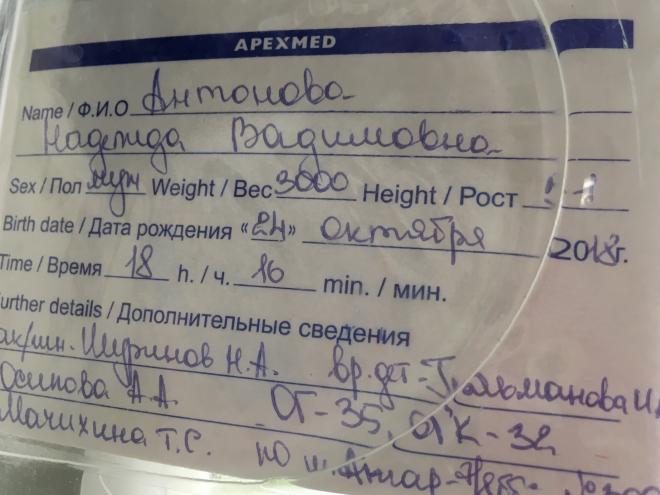 APEXMED
Name / Ф.И.О Антонова
Надежда Вадимовна
Sex / Пол муж Weight / Вес 3000 Height / Рост
Birth date / Дата рождения «24» октября 2018г.
Time / Время 18 h. / ч. 16 min. / мин.
Further details / Дополнительные сведения
Ширинов Н.А. вр. дет-
Осипова А.А. ОГ-35, ОГК-32
Мачихина Т.С. по ш. Апгар-